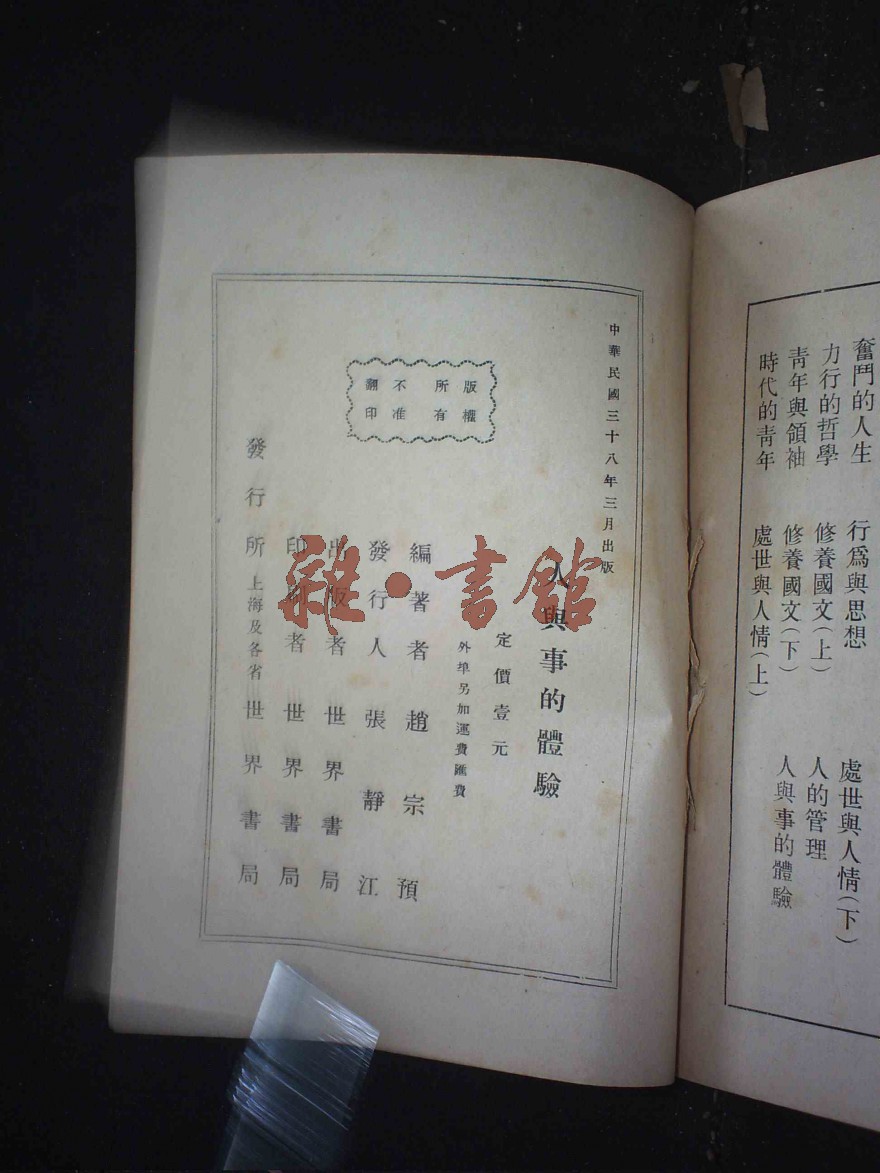 奮鬥的人生
力行的哲學
青年與領袖
時代的青年
行爲與思想
修養國文(上)
修養國文(下)
處世與人情(上)
處世與人情(下)
人的管理
人與事的體驗
中華民國三十八年三月出版
版權
所有
不准
翻印
人與事的體驗
定價壹元
外埠另加運費匯費
編著者 趙宗預
發行人 張靜江
出版者 世界書局
印刷者 世界書局
發行所 上海及各省 世界書局
雜·書館